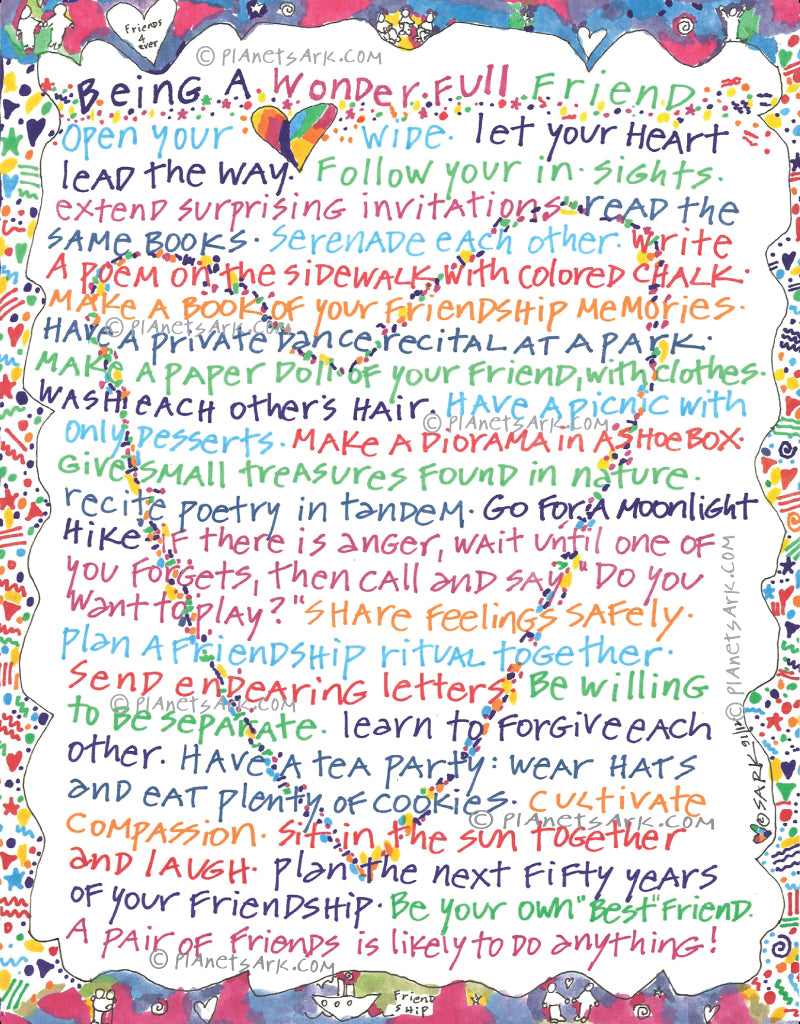 Friends
4
ever
© PlanetSark.com
Being A Wonder Full Friend
Open your wide. Let your heart
lead the way. Follow your in-sights.
extend surprising invitations. read the
same books. Serenade each other. Write
A poem on the sidewalk with colored chalk.
Make a book of your friendship memories.
© PlanetSark.com
Have a private dance recital at a park.
Make a paper doll of your friend, with clothes.
Wash each other's hair. Have a picnic with
© PlanetSark.com
only desserts. Make a diorama in a shoebox.
Give small treasures found in nature.
recite poetry in tandem. Go for a moonlight
Hike. If there is anger, wait until one of
you forgets, then call and say "Do you
want to play?" Share feelings safely.
plan a friendship ritual together.
Send endearing letters. Be willing
© PlanetSark.com
to be separate. learn to forgive each
other. Have a tea party: wear hats
and eat plenty of cookies. Cultivate
© PlanetSark.com
compassion. Sit in the sun together
and laugh. plan the next fifty years
of your friendship. Be your own "Best" friend.
A pair of friends is likely to do anything!
© PlanetSark.com
© PlanetSark.com
© SARK
Friend
ship